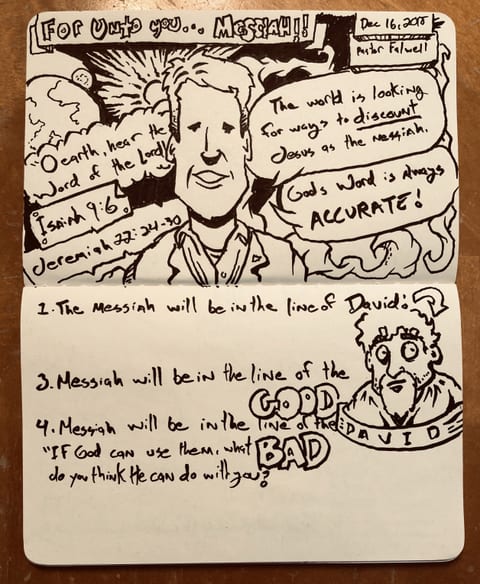 For Unto you... Messiah!!
Dec 16, 2018
Pastor Falwell
The world is looking
for ways to discount
Jesus as the messiah.
God's Word is always
ACCURATE!
"O earth, hear the
word of the Lord!"
Isaiah 9:6
Jeremiah 22:24-30
1. The Messiah will be in the line of David:
3. Messiah will be in the line of the
GOOD
4. Messiah will be in the line of the
BAD
"IF God can use them, what
do you think He can do with you?
DAVID